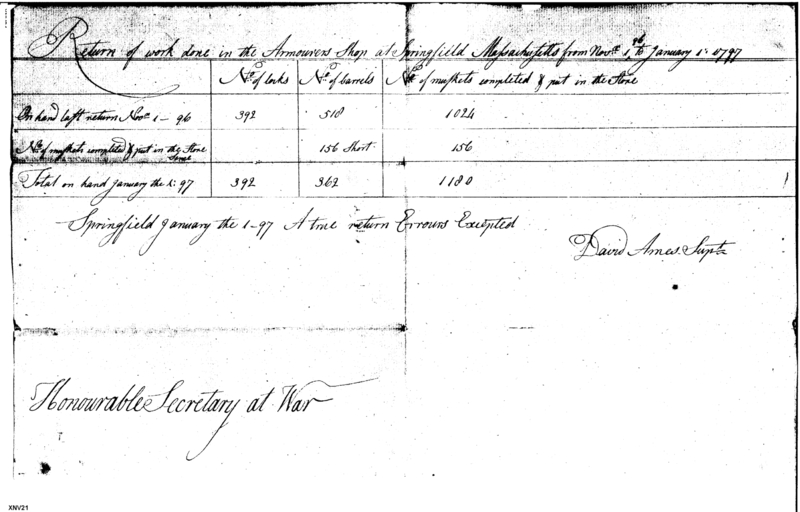 Return of work done in the Armourers Shop at Springfield Massachusetts from Novr 1, 96 to January 1: 1797
No. of locks No. of barrels No. of muskets completed & put in the Store
On hand last return Novr 1 - 96 392 518 1024
No. of muskets completed & put in the Store Since 156 Short 156
Total on hand January the 1: 97 392 362 1180
Springfield January the 1 - 97 A true return Errours Excepted
David Ames Supt
Honourable Secretary at War
XNV21